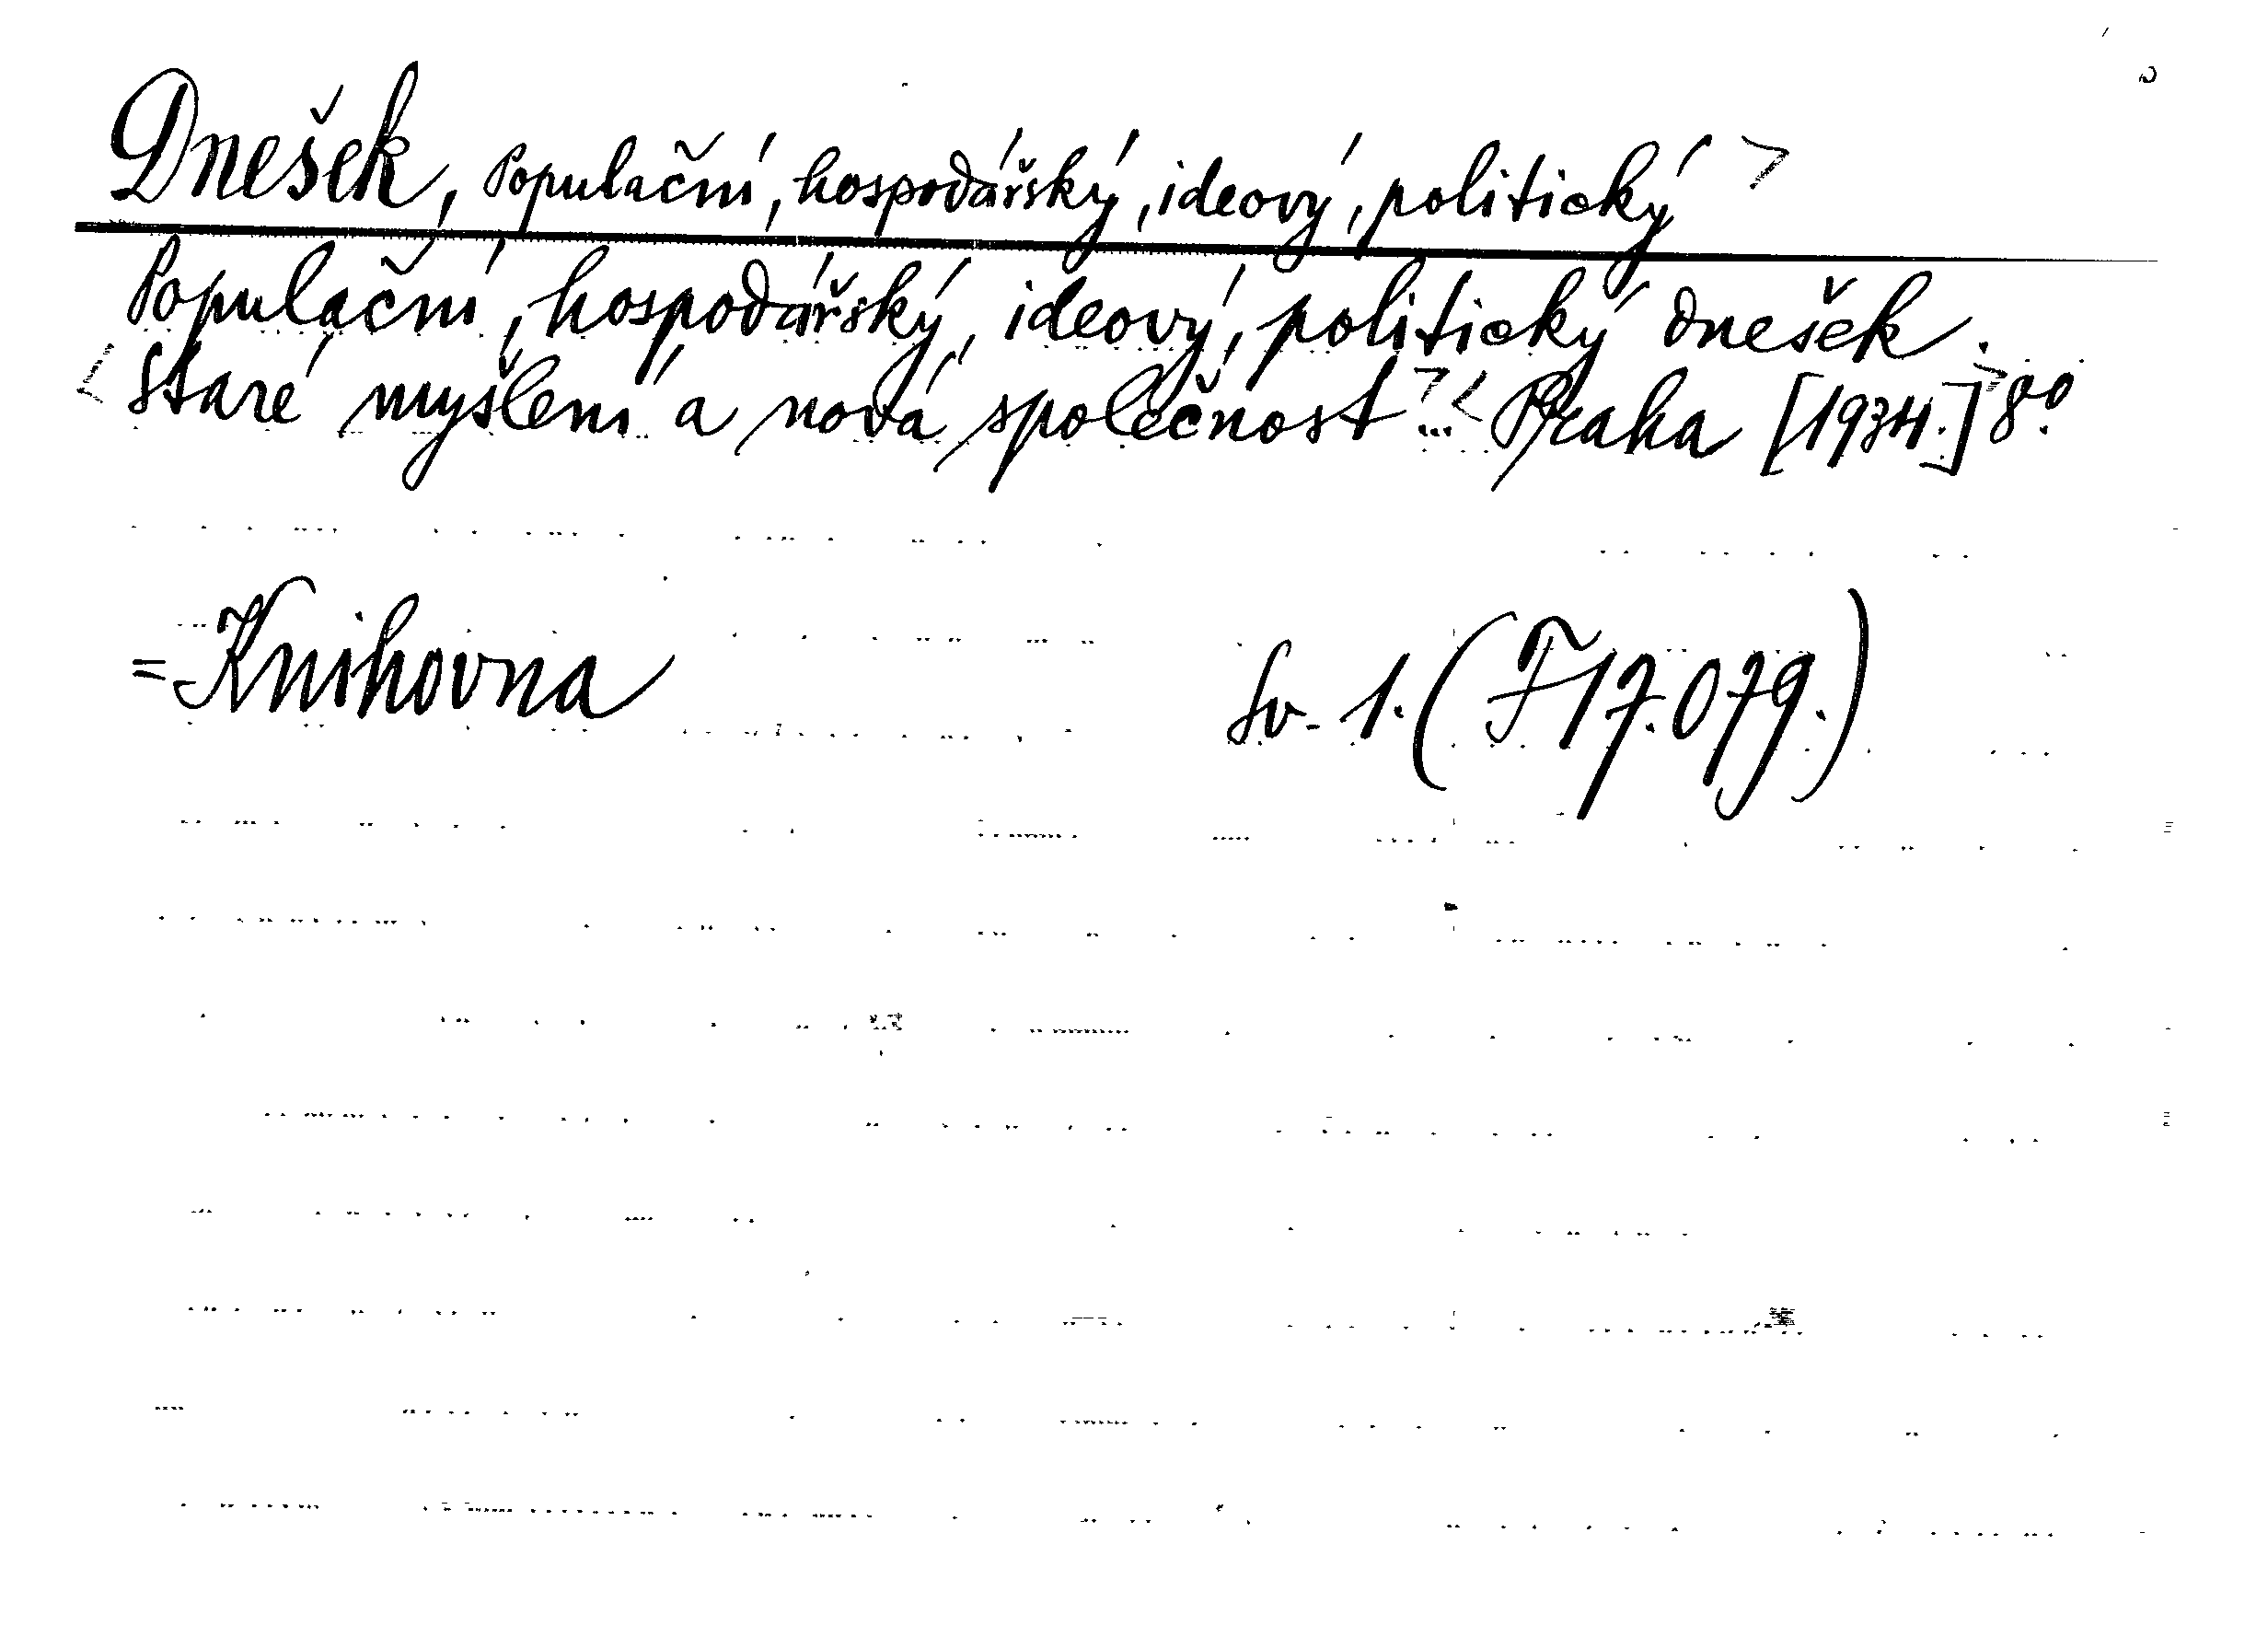 Dnešek, Populační, hospodářský, ideový, politický >
Populační, hospodářský, ideový, politický dnešek.
< Staré myšlení a nová společnost > ... < Praha [1934.] > 8º.
= Knihovna Sv. 1. (F 17.079.)